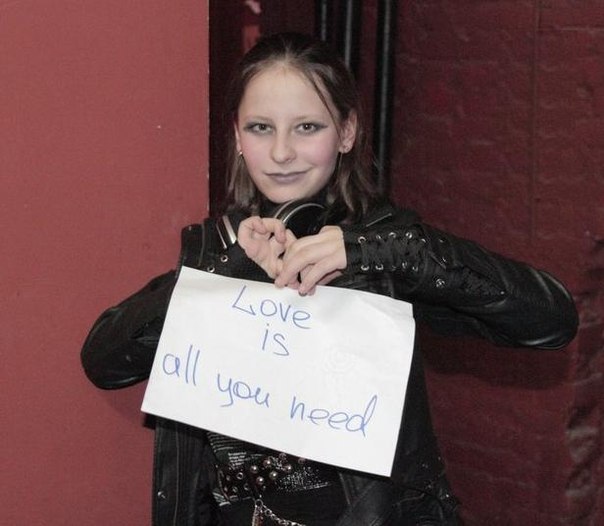 Love
is
all you need